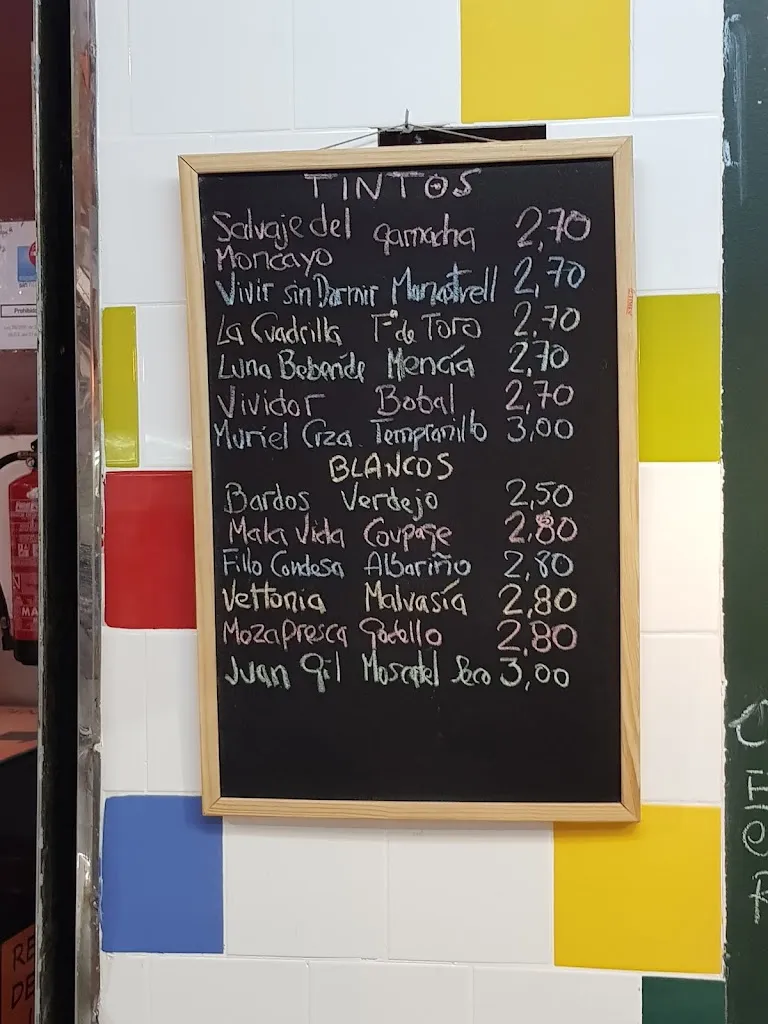 TINTOS
Salvaje del garnacha 2,70
Moncayo
Vivir sin Dormir Monastrell 2,70
La Cuadrilla Tª de Toro 2,70
Luna Beberide Mencía 2,70
Vividor Bobal 2,70
Muriel Crza Tempranillo 3,00
BLANCOS
Bardos Verdejo 2,50
Mala Vida Coupage 2,80
Fillo Condesa Albariño 2,80
Vettonia Malvasía 2,80
Moza Fresca Godello 2,80
Juan Gil Moscatel Seco 3,00
Prohibido
RE
DE